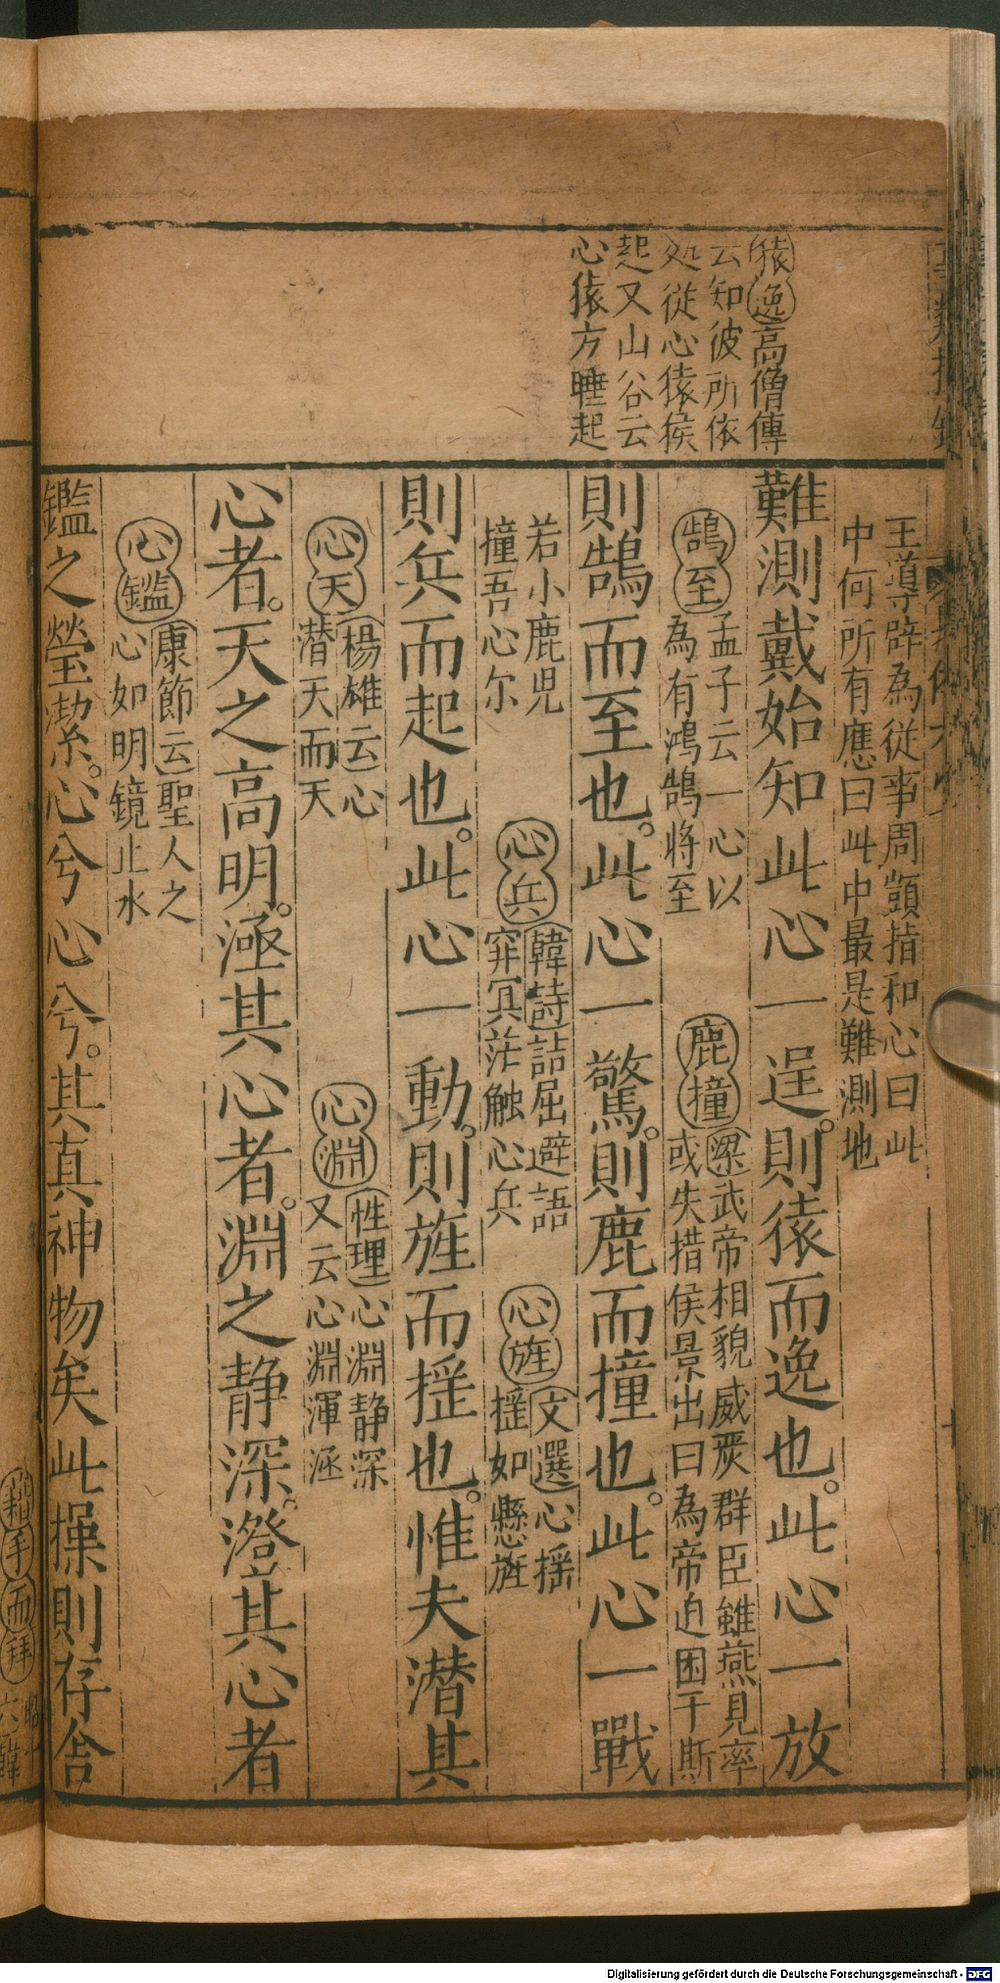 猿逸高僧傳
云知彼所依
処從心猿猴
起又山谷云
心猿方睡起
王導辟為從事周顗指和心曰此
中何所有應曰此中最是難測地
難測戴始知此心一逞。則猿而逸也。此心一放
鵠至孟子云一心以
為有鴻鵠將至
鹿撞梁武帝相貌威嚴群臣雖燕見率
或失措侯景出曰為帝迫困于斯
則鵠而至也。此心一驚。則鹿而撞也。此心一戰
若小鹿児
撞吾心尔
心兵韓詩詰屈避語
穽冥茫触心兵
心旌文選心揺
揺如懸旌
則兵而起也。此心一動。則旌而揺也。惟夫潜其
心天楊雄云心
潜天而天
心淵性理心淵静深
又云心淵渾涵
心者。天之高明。涵其心者。淵之静深。澄其心者
心鑑康節云聖人之
心如明鏡止水
鑑之瑩潔。心兮心兮。其真神物矣此操則存舍
手而拜
Digitalisierung gefördert durch die Deutsche Forschungsgemeinschaft - DFG